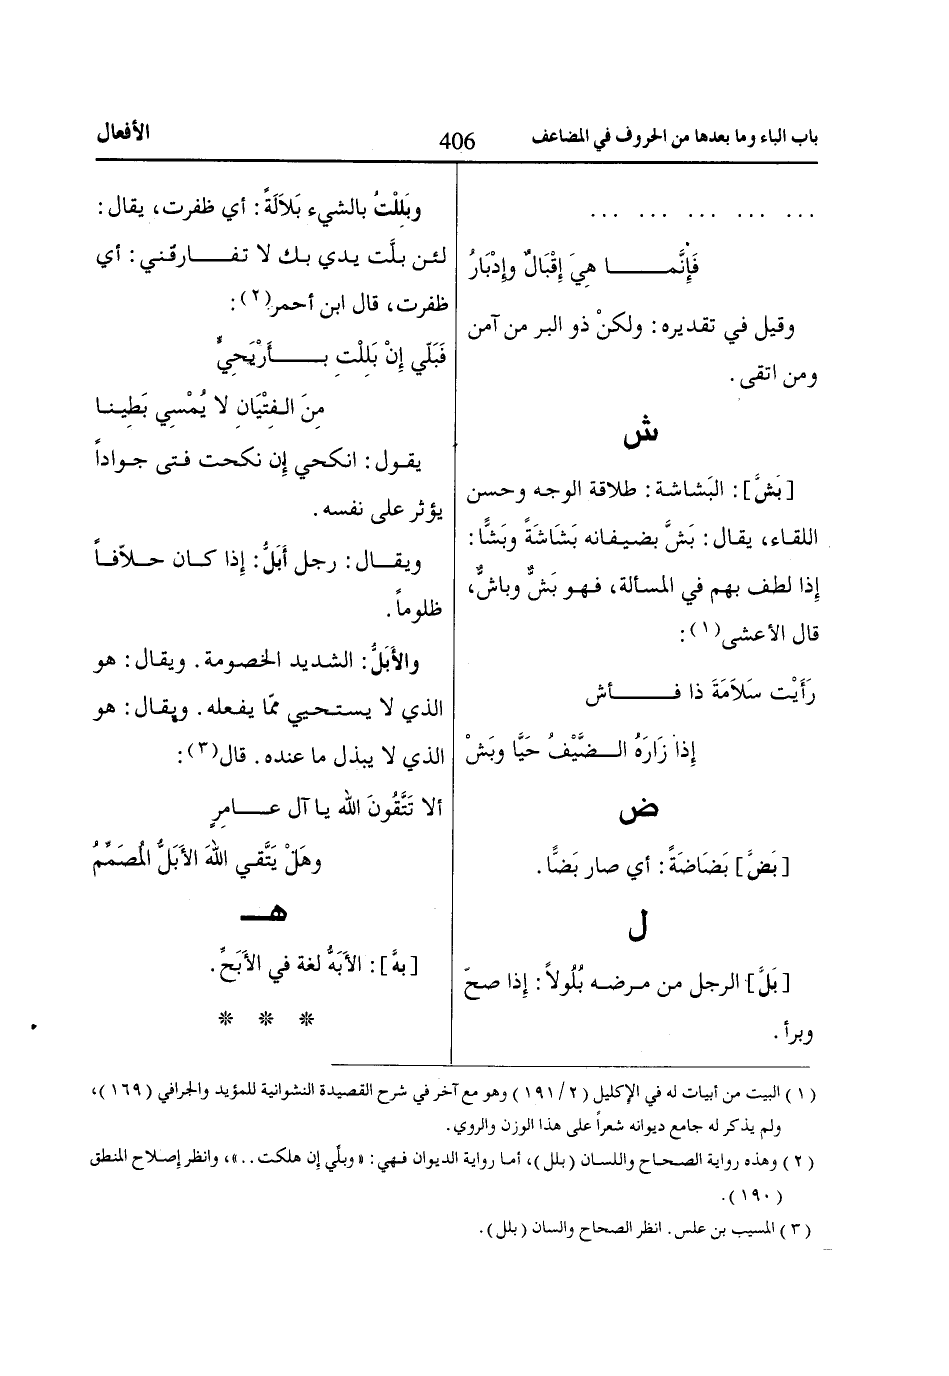 باب الباء وما بعدها من الحروف في المضاعف
406
الأفعال
... ... ... ... ...
فَإِنَّمـــــا هِيَ إِقْبَالٌ وإِدْبَارُ
وقيل في تقديره: ولكنْ ذو البر من آمن
ومن اتقى.
ش
[بَشَّ]: البَشاشة: طلاقة الوجه وحسن
اللقاء، يقال: بَشَّ بضيفانه بَشَاشَةً وبَشًّا:
إذا لطف بهم في المسألة، فهو بَشٌّ وباشٌّ،
قال الأعشى(١):
رَأَيْت سَلاَمَةَ ذا فـــــأش
إِذا زَارَهُ الـضَّيْفُ حَيَّا وبَشْ
ض
[بَضَّ] بَضَاضَةً: أي صار بَضًّا.
ل
[بَلَّ] الرجل من مرضه بُلُولاً: إِذا صحّ
وبرأ.
وبَلِلْتُ بالشيء بَلاَلَةً: أي ظفرت، يقال:
لئن بلَّت يدي بك لا تفـــارقني: أي
ظفرت، قال ابن أحمر(٢):
فَبَلِّي إِنْ بَلِلْتِ بـــــأَرْيَحِيٍّ
مِنَ الـفِتْيَانِ لا يُمْسِي بَطِينـا
يقـول: انكحي إن نكحت فتى جواداً
يؤثر على نفسه.
ويقـال: رجل أَبَلُّ: إذا كـان حـلاّفـاً
ظلوماً.
والأَبَلُّ: الشديد الخصومة. ويقال: هو
الذي لا يستحيي ممّا يفعله. ويقال: هو
الذي لا يبذل ما عنده. قال(٣):
ألا تَتَّقُونَ الله يا آل عـــامِرٍ
وهَلْ يَتَّقي اللهَ الأَبَلُّ المُصَمِّمُ
هـ
[بهَّ]: الأبَهُّ لغة في الأَبَحِّ.
* * *
(١) البيت من أبيات له في الإكليل (٢/١٩١) وهو مع آخر في شرح القصيدة النشوانية للمؤيد والجرافي (١٦٩)،
ولم يذكر له جامع ديوانه شعراً على هذا الوزن والروي.
(٢) وهذه رواية الصحاح واللسان (بلل)، أما رواية الديوان فهي: «وبلّي إن هلكت..»، وانظر إصلاح المنطق
(١٩٠).
(٣) المسيب بن علس. انظر الصحاح والسان (بلل).